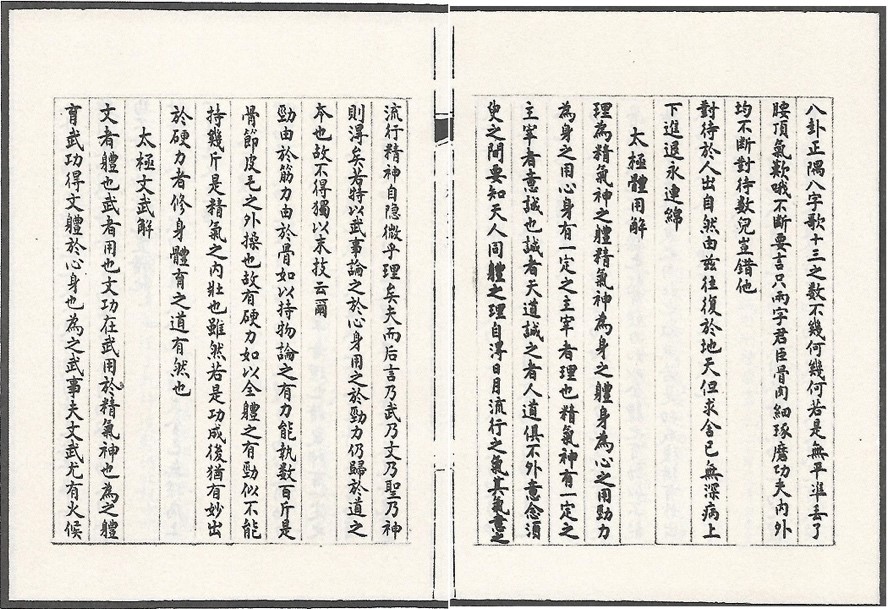 八卦正隅八字歌十三之数不幾何幾何若是無平凖丢了
腰頂氣歎哦不斷要言只兩字君臣骨肉細琢磨功夫内外
均不斷對待数兒豈錯他
對待於人出自然由兹往復於地天但求舍己無深病上
下進退永連綿
太極體用解
理為精氣神之體精氣神為身之體身為心之用勁力
為身之用心身有一定之主宰者理也精氣神有一定之
主宰者意誠也誠者天道誠之者人道俱不外意念須
臾之間要知天人同體之理自淂日月流行之氣其氣意之
流行精神自隐微乎理矣夫而后言乃武乃文乃聖乃神
則淂矣若特以武事論之於心身用之於勁力仍歸於道之
本也故不得獨以末技云爾
勁由於筋力由於骨如以持物論之有力能执数百斤是
骨節皮毛之外操也故有硬力如以全體之有勁似不能
持幾斤是精氣之内壯也雖然若是功成後猶有妙出
於硬力者修身體育之道有然也
太極文武解
文者體也武者用也文功在武用於精氣神也為之體
育武功得文體於心身也為之武事夫文武尤有火候